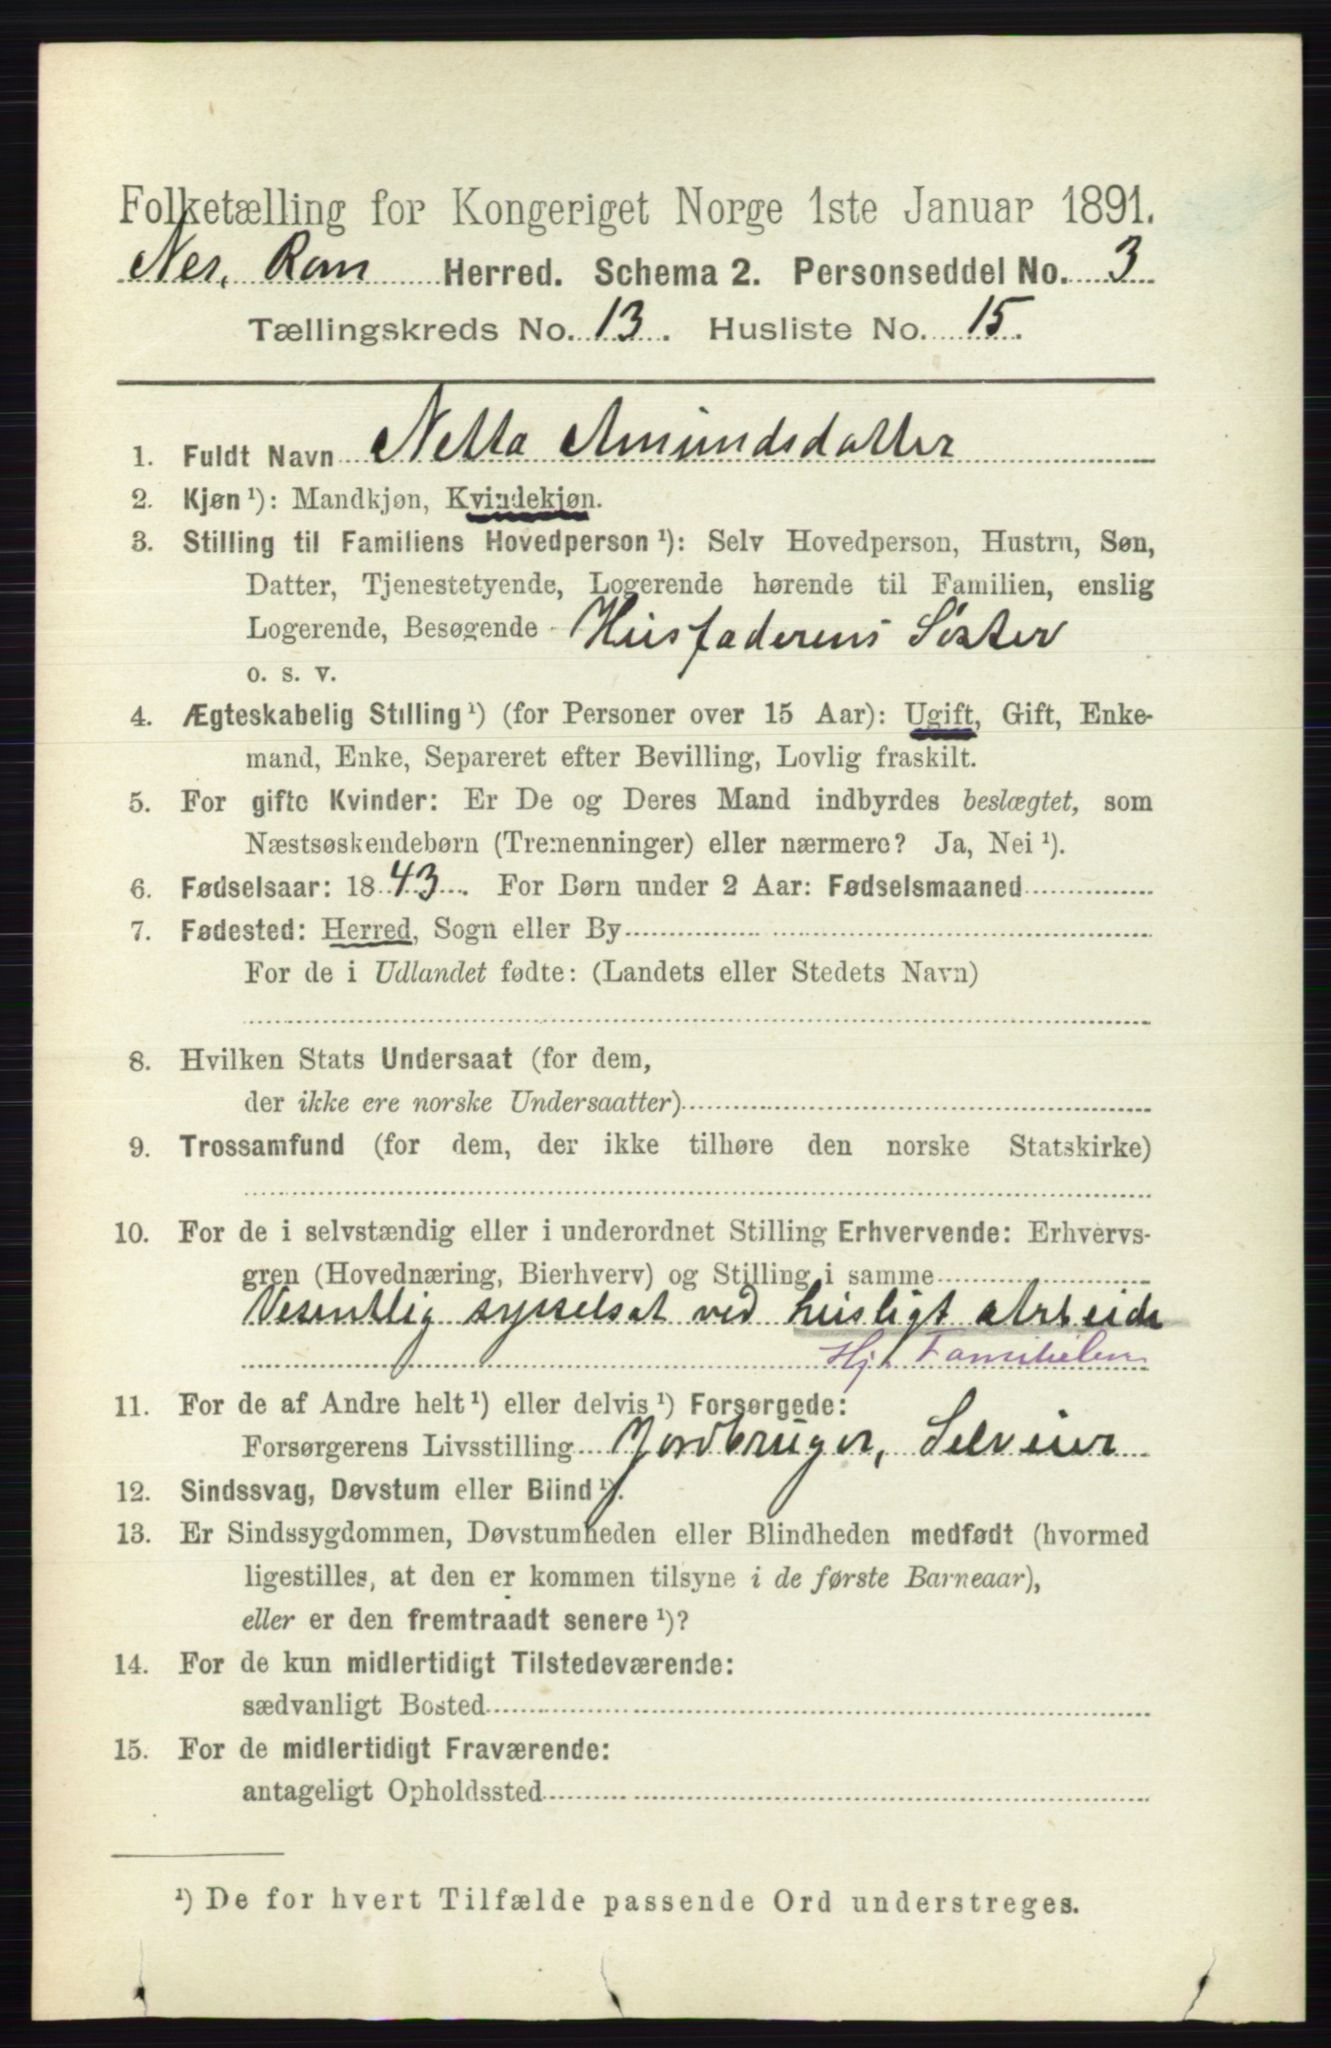 Folketælling for Kongeriget Norge 1ste Januar 1891.
Nes, Rom Herred. Schema 2. Personseddel No. 3
Tællingskreds No. 13. Husliste No. 15.
1. Fuldt Navn Netta Amundsdatter
2. Kjøn¹): Mandkjøn, Kvindekjøn.
3. Stilling til Familiens Hovedperson¹): Selv Hovedperson, Hustru, Søn,
Datter, Tjenestetyende, Logerende hørende til Familien, enslig
Logerende, Besøgende Husfaderens Søster
o. s. v.
4. Ægteskabelig Stilling¹) (for Personer over 15 Aar): Ugift, Gift, Enke-
mand, Enke, Separeret efter Bevilling, Lovlig fraskilt.
5. For gifte Kvinder: Er De og Deres Mand indbyrdes beslægtet, som
Næstsøskendebørn (Tremenninger) eller nærmere? Ja, Nei¹).
6. Fødselsaar: 1843. For Børn under 2 Aar: Fødselsmaaned
7. Fødested: Herred, Sogn eller By
For de i Udlandet fødte: (Landets eller Stedets Navn)
8. Hvilken Stats Undersaat (for dem,
der ikke ere norske Undersaatter)
9. Trossamfund (for dem, der ikke tilhøre den norske Statskirke)
10. For de i selvstændig eller i underordnet Stilling Erhvervende: Erhvervs-
gren (Hovednæring, Bierhverv) og Stilling i samme
Vesentlig sysselsat ved husligt Arbeide
Hj. Familielem
11. For de af Andre helt¹) eller delvis¹) Forsørgede:
Forsørgerens Livsstilling Jordbruger, Selveier
12. Sindssvag, Døvstum eller Blind¹).
13. Er Sindssygdommen, Døvstumheden eller Blindheden medfødt (hvormed
ligestilles, at den er kommen tilsyne i de første Barneaar),
eller er den fremtraadt senere¹)?
14. For de kun midlertidigt Tilstedeværende:
sædvanligt Bosted
15. For de midlertidigt Fraværende:
antageligt Opholdssted
¹) De for hvert Tilfælde passende Ord understreges.